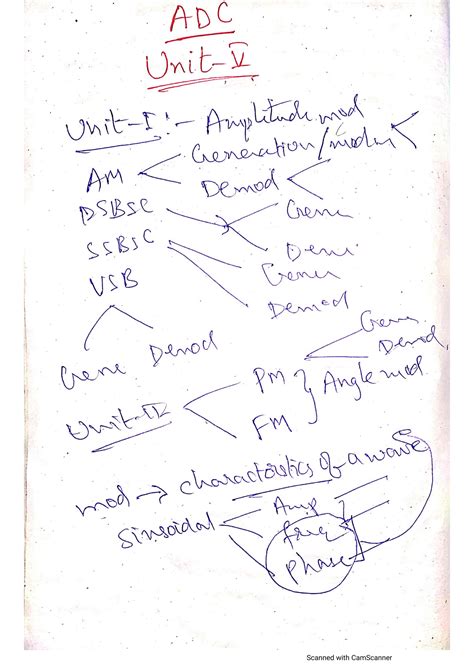 ADC
Unit-V
Unit-I :- Amplitude mod
AM
Generation/modun
Demod
DSBSC
Gene
SSBSC
Dem
Gener
VSB
Demod
Gene Demod
Gene
Demod,
Unit-II
PM
FM
Angle mod
mod → charactoistics of a wave
Sinsoidal
Amp
freq
phase
Scanned with CamScanner